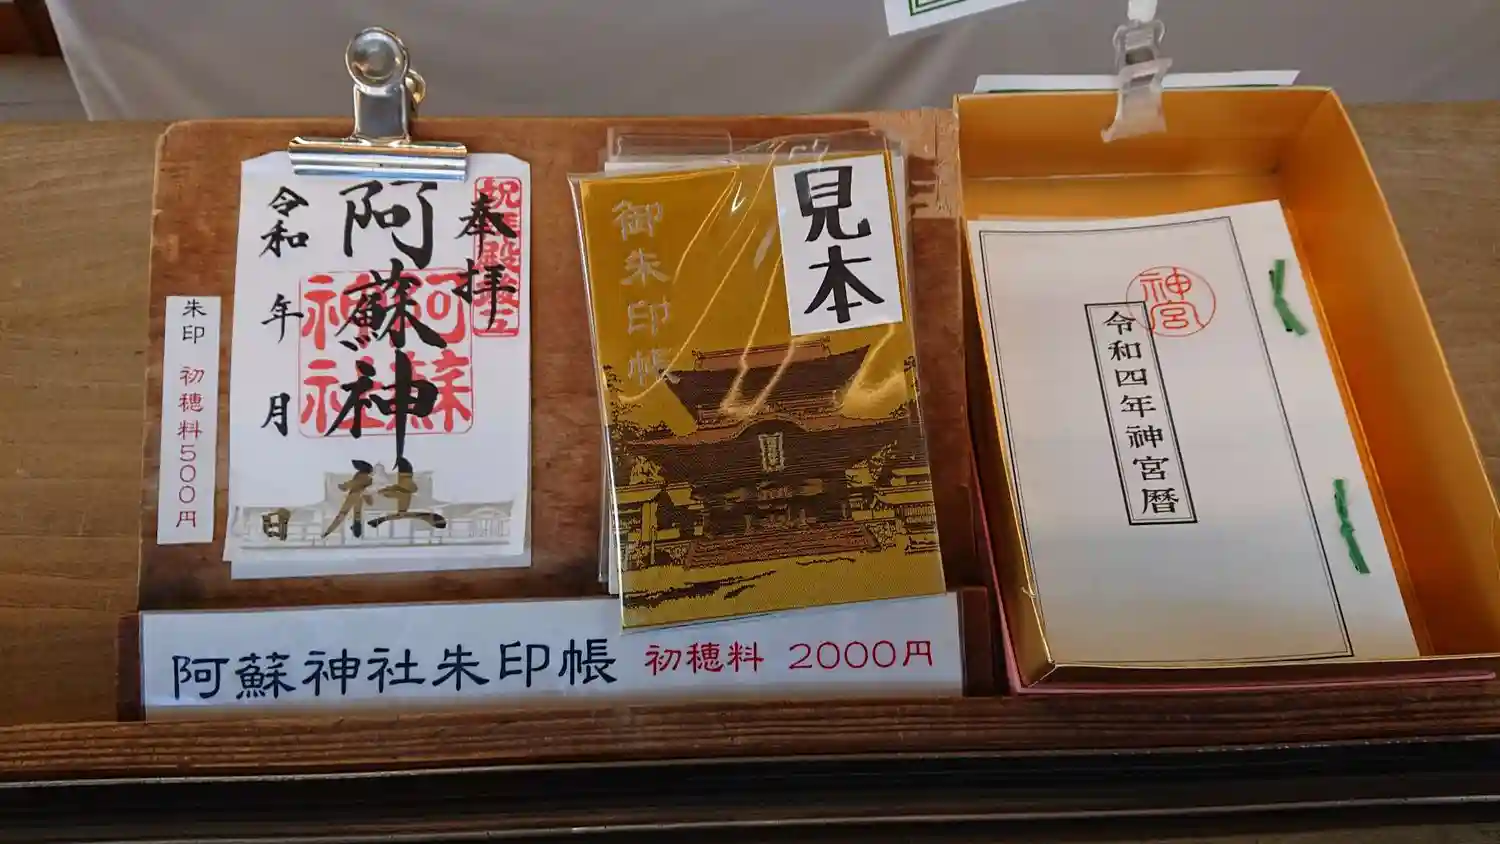 奉拝
祝拝殿竣工
阿蘇神社
阿蘇
神社
令和 年 月 日
朱印 初穂料500円
御朱印帳
見本
阿蘇神社朱印帳 初穂料 2000円
神宮
令和四年神宮暦